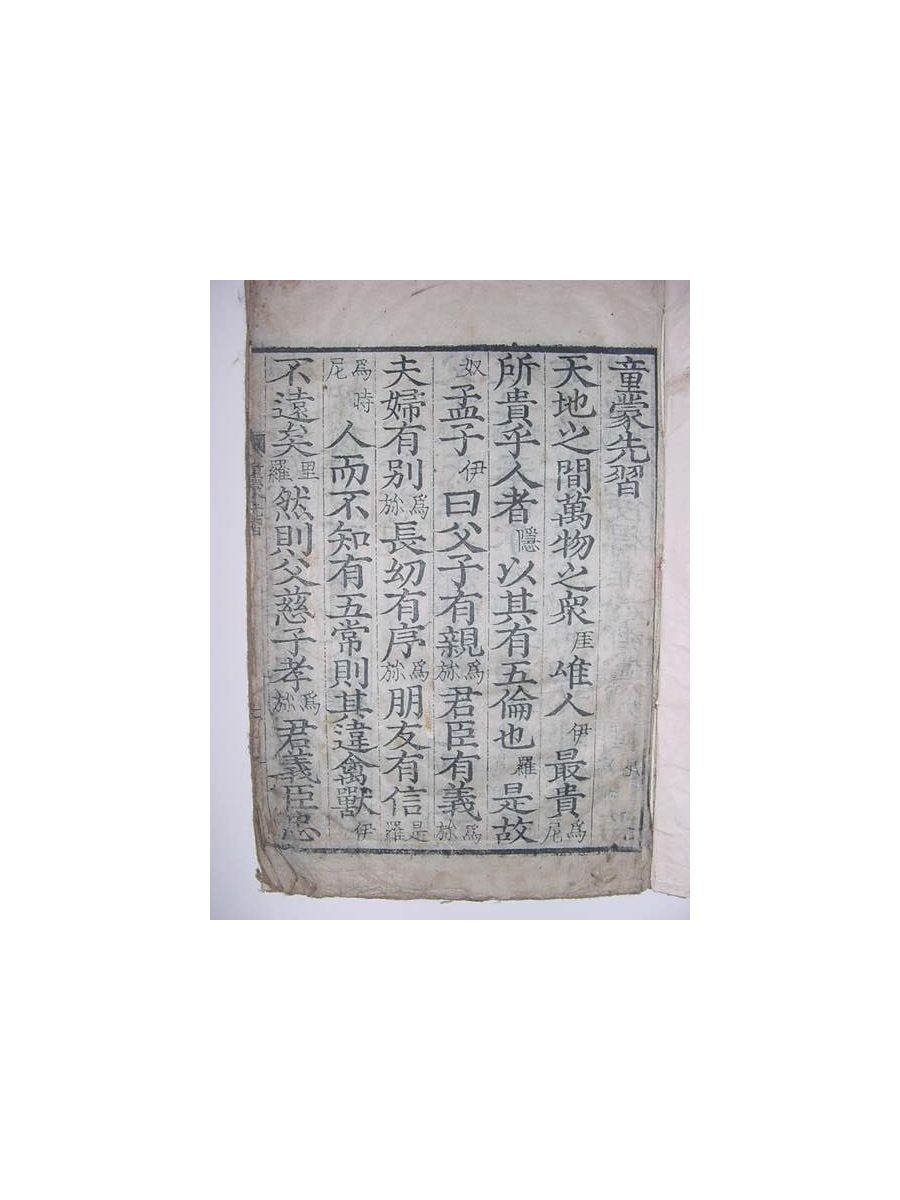 童蒙先習
天地之間萬物之衆厓惟人伊最貴爲尼
所貴乎人者隱以其有五倫也羅是故
奴孟子伊曰父子有親爲旀君臣有義爲旀
夫婦有別爲旀長幼有序爲旀朋友有信是羅
爲時尼人而不知有五常則其違禽獸伊
不遠矣里羅然則父慈子孝爲旀君義臣忠
童蒙先習